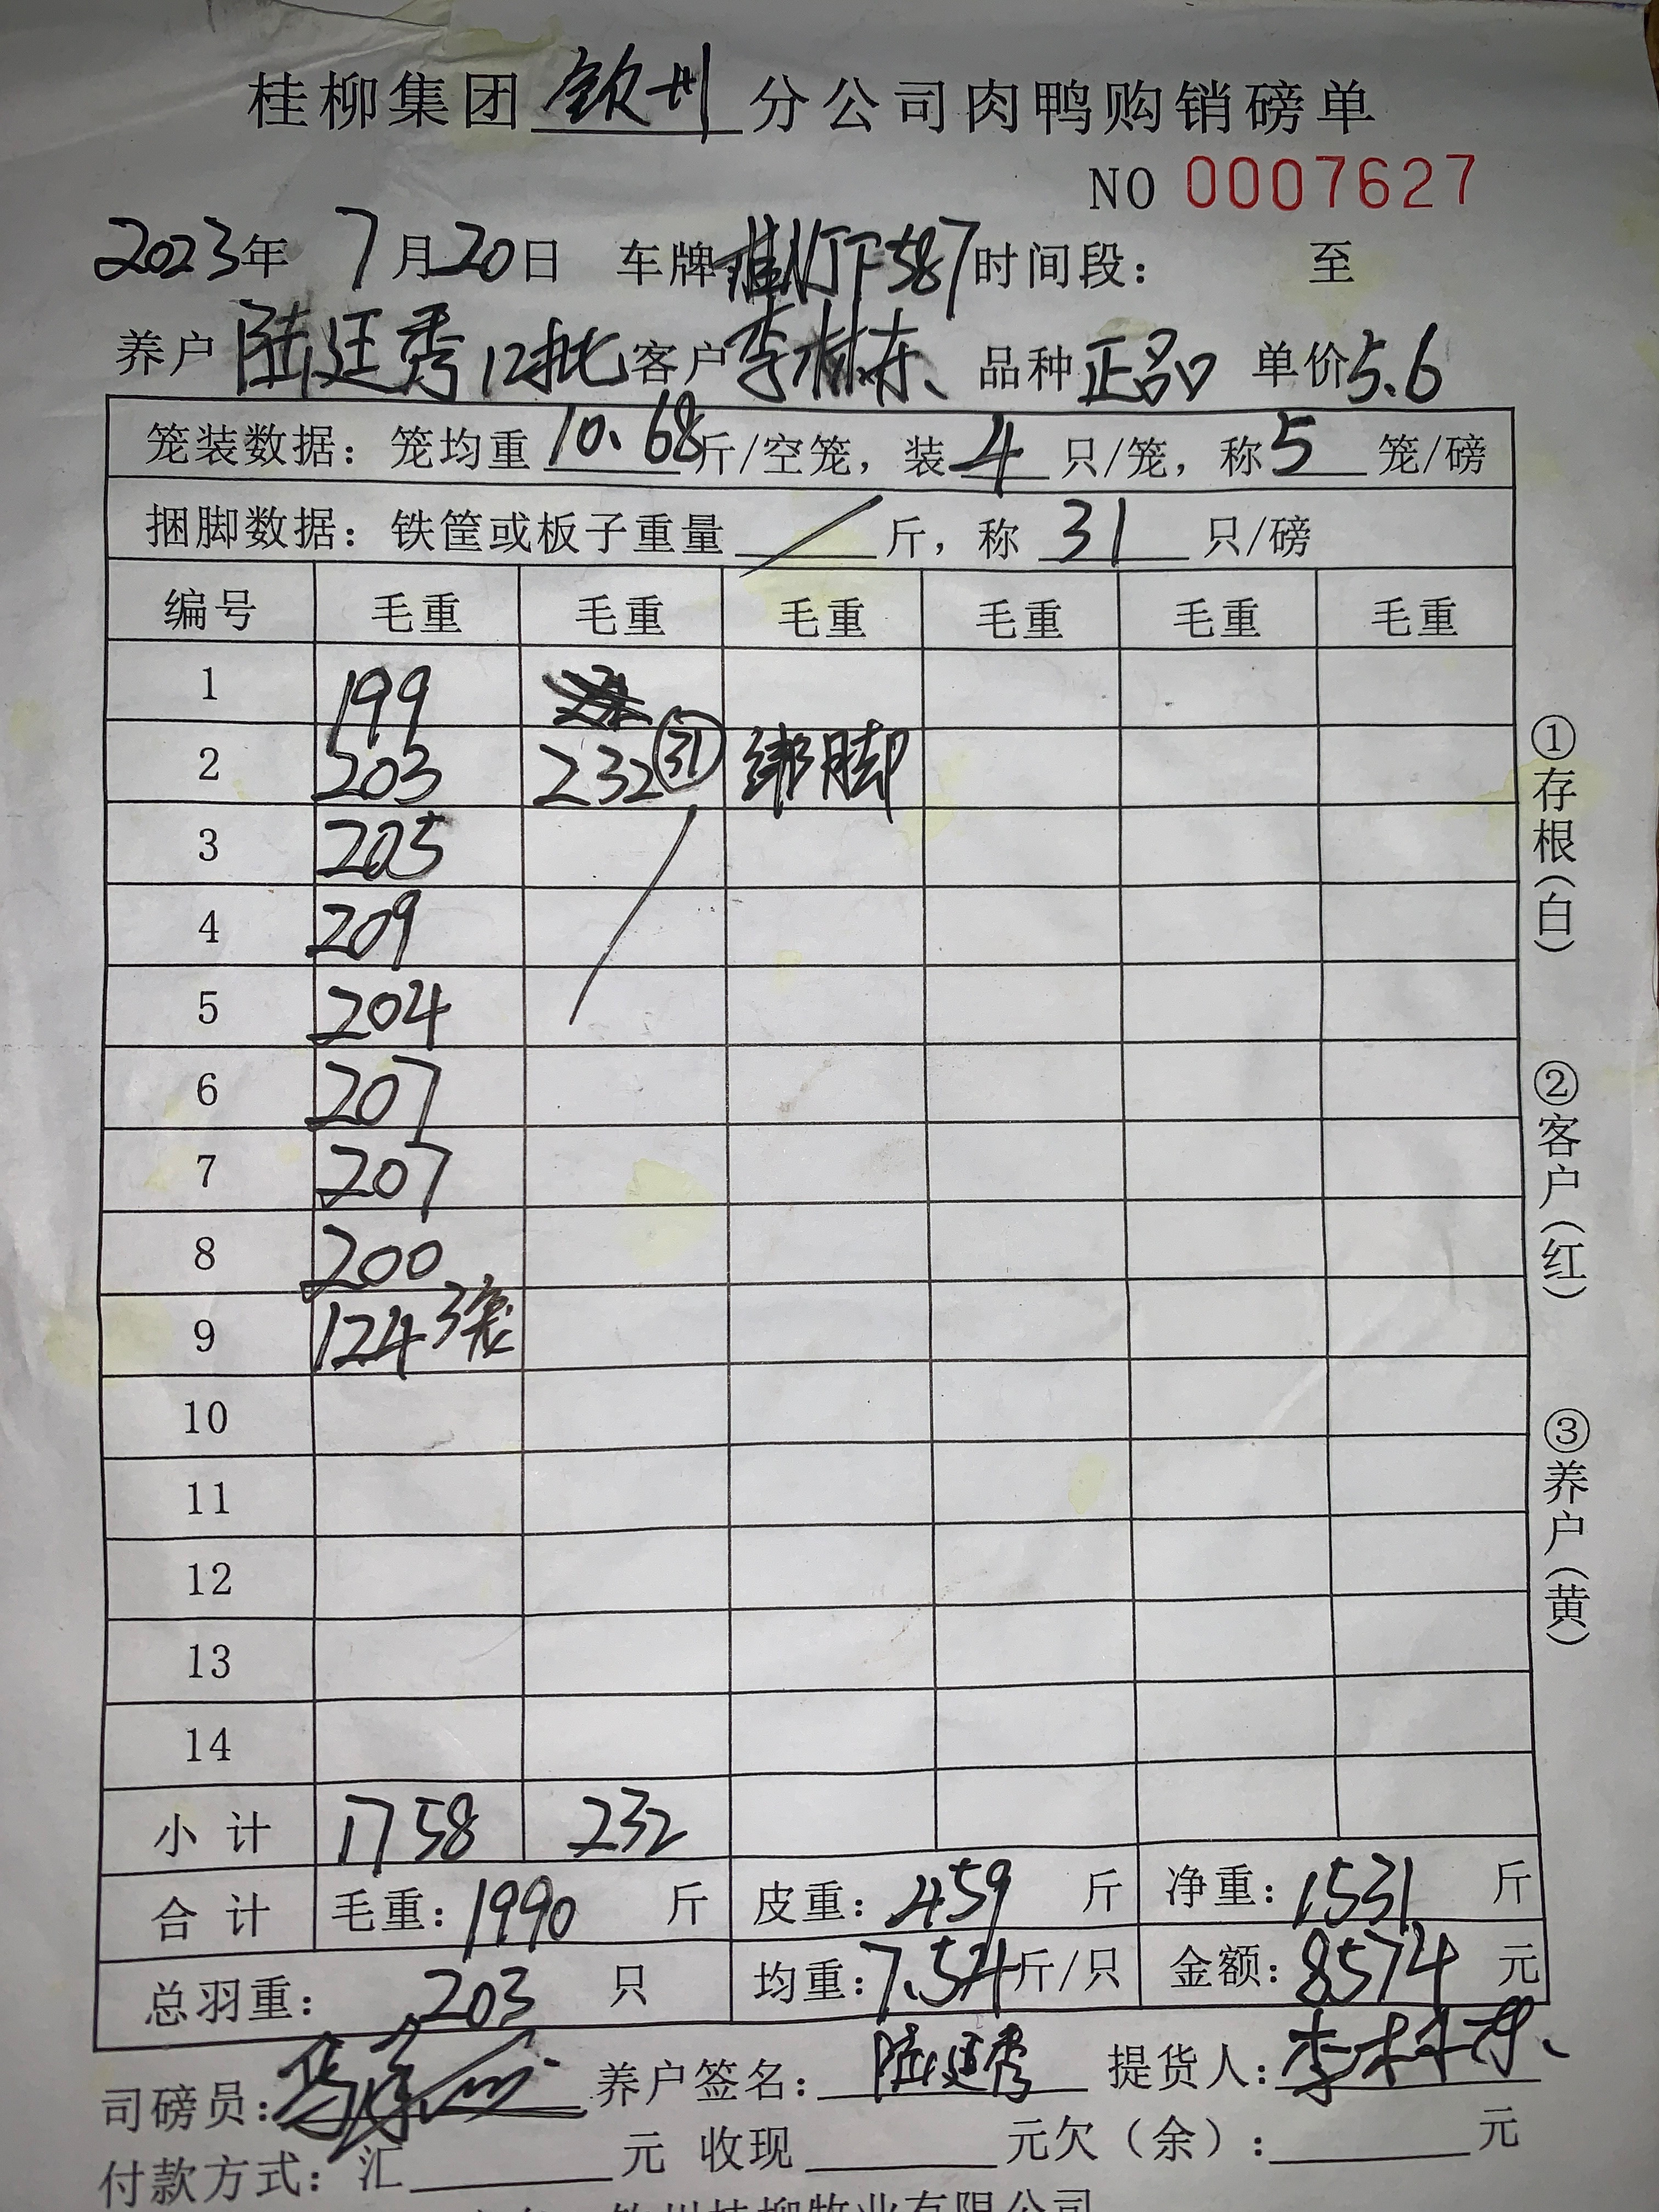 桂柳集团 钦州 分公司肉鸭购销磅单
NO 0007627
2023年 7月20日 车牌 587 时间段: 至
养户 陆廷秀12批 客户 李林东 品种 正品 单价5.6
笼装数据: 笼均重 10.68 斤/空笼, 装 4 只/笼, 称 5 笼/磅
捆脚数据: 铁筐或板子重量 / 斤, 称 31 只/磅
编号 毛重 毛重 毛重 毛重 毛重 毛重
1 199
2 203 232 31 绑脚
3 205
4 209
5 204
6 207
7 207
8 200
9 124 3笼
10
11
12
13
14
小计 1758 232
合计 毛重: 1990 斤 皮重: 459 斤 净重: 1531 斤
总羽重: 203 只 均重: 7.54 斤/只 金额: 8574 元
司磅员: 养户签名: 陆廷秀 提货人: 李林东
付款方式: 汇 元 收现 元欠(余): 元
钦州桂柳牧业有限公司
①存根(白)
②客户(红)
③养户(黄)